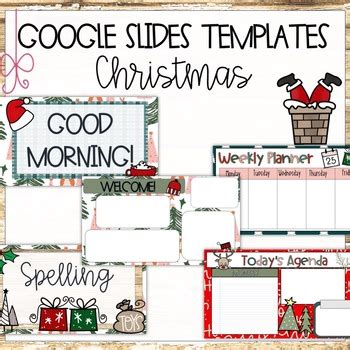 GOOGLE SLIDES TEMPLATES
Christmas
GOOD
MORNING!
Weekly Planner
25
Monday Tuesday Wednesday Thursday Friday
WELCOME!
Today's Agenda
Spelling
TOYS